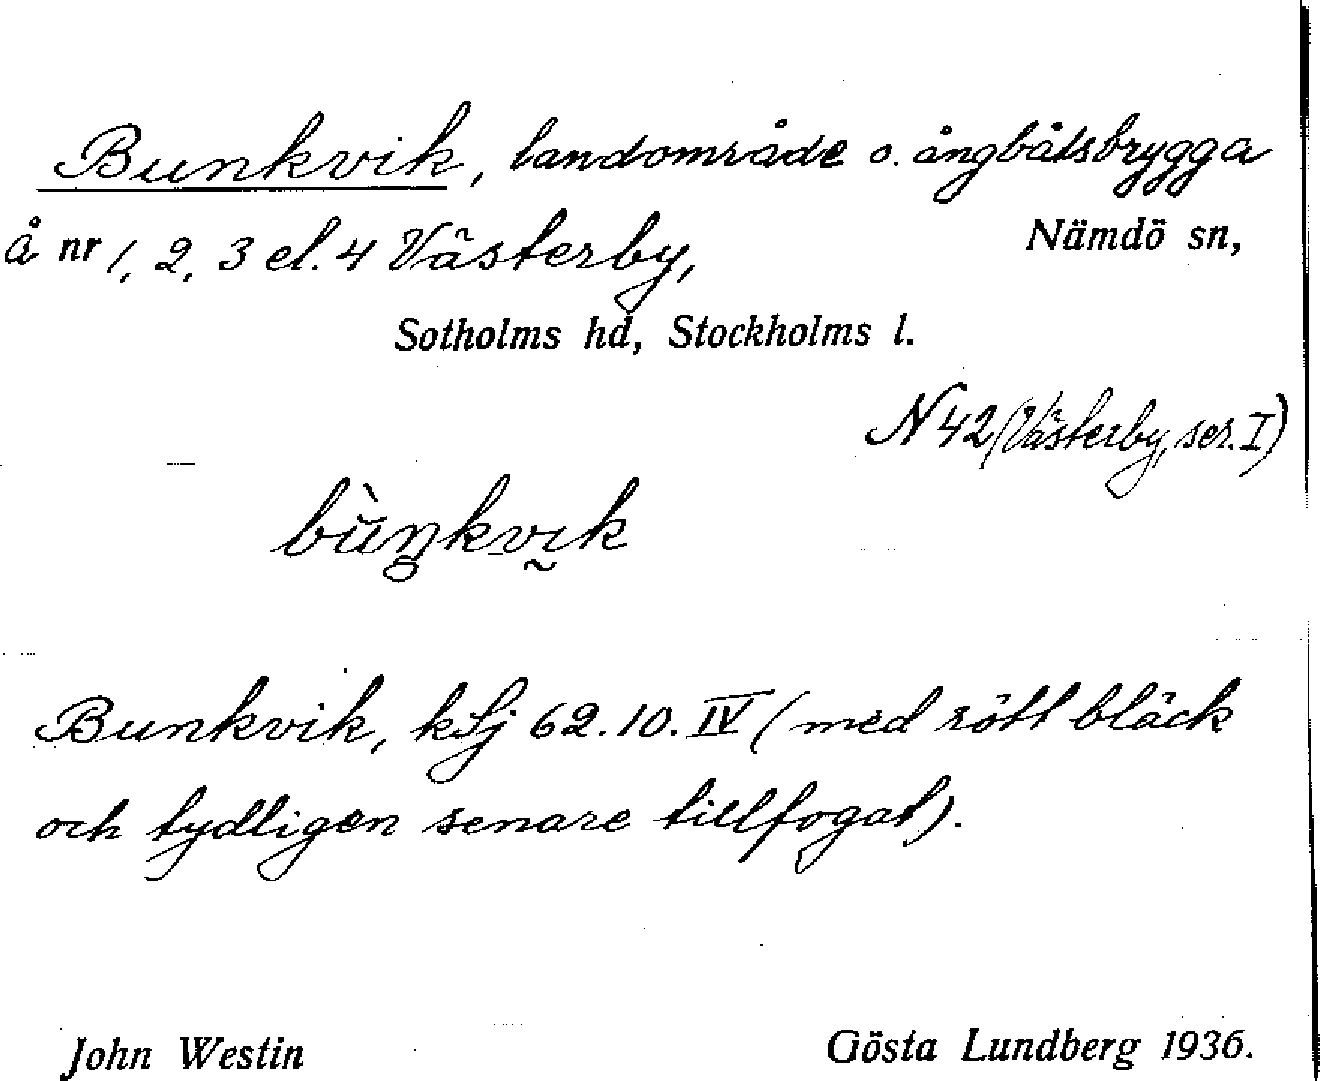 Bunkvik, landområde o. ångbåtsbrygga
å nr 1, 2, 3 el. 4 Västerby, Nämdö sn,
Sotholms hd, Stockholms l.
N 42 (Västerby, ser. I)
bùŋkvik
Bunkvik, kSj 62.10.IV (med rött bläck
och tydligen senare tillfogat).
John Westin Gösta Lundberg 1936.